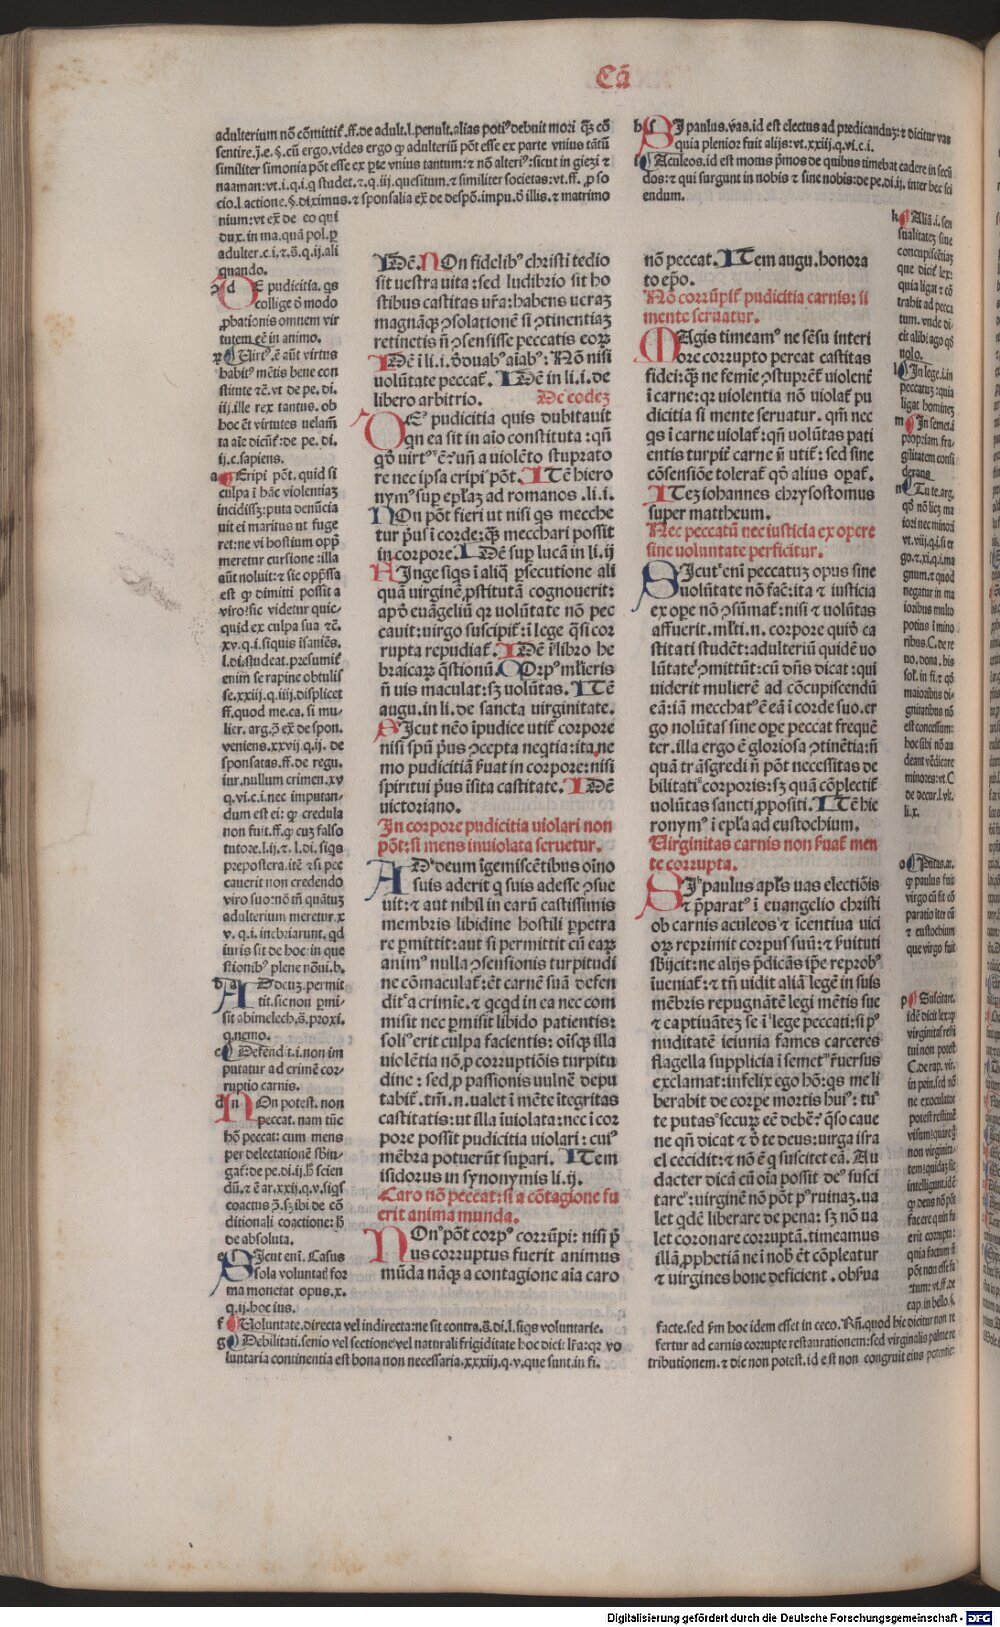 Cā
adulterium nō cōmittit᷒.ff.de adult.l.penult.alias potiꝰ debuit mori q̄ꝫ cō
sentire.j.e.§.cū ergo.vides ergo ꝙ adulteriū pōt esse ex parte vnius tātū
similiter simonia pōt esse ex ꝑte vnius tantum:⁊ nō alteriꝰ:sicut in giezi ⁊
naaman:vt.i.q.i.q studet.⁊.q.iii.quesitum.⁊ similiter societas:vt.ff.ꝓ so
cio.l.actione.§.diximus.⁊ sponsalia ex̄ de despō.impu.ō illis.⁊ matrimo
nium:vt ex̄ de eo qui
dux.in ma.quā pol.ꝑ
adulter.c.i.⁊.s̄.q.ij.ali
quando.
De pudicitia. qs
collige ō modo
ꝓbationis omnem vir
tutem eē in animo.
Uirtꝰ.ē aūt virtus
habitꝰ mētis bene con
stitute ⁊c̄.vt de pe.di.
iij.ille rex tantus.ob
hoc ēt virtutes uelam̄
ta aīe dicūt᷒:de pe.di.
ij.c.sapiens.
Eripi pōt.quid si
culpa ī hāc violentiaꝫ
incidissꝫ:puta denūcia
uit ei maritus ut fuge
ret:ne vi hostium opp̄
meretur cursione:illa
aūt noluit:⁊ sic opp̄ssa
est ꝙ dimitti possit a
viro:sic videtur quic-
quid ex culpa sua ⁊c̄.
xv.q.i.siquis īsaniēs.
l.di.studeat.presumit᷒
enim se rapine obtulis
se.xxiij.q.iiij.displicet
ff.quod me.ca.si mu-
lier.arg.ɔ̄ ex̄ de spon.
veniens.xxvij.q.ij.de
sponsatas.ff.de regu.
iur.nullum crimen.xv
q.vi.c.i.nec imputan-
dum est ei:ꝙ credula
non fuit.ff.ꝙ cuꝫ falso
tutore.l.ij.⁊.l.di.siqs
prepostera.itē ⁊ si pec
cauerit non credendo
viro suo:nō tm̄ quātuꝫ
adulterium meretur.x
v.q.i.inebriarunt.qd
iuris sit de hoc:in que
stionibꝰ plene nōui.b.
Ad deuꝫ.permit
tit.sic nou ꝑmi-
sit abimelech.s̄.proxi.
q.nemo.
Defendit.i.non im
putatur ad crimē cor
ruptio carnis.
Non potest.non
peccat.nam tūc
hō peccat:cum mens
per delectationē sbiu-
gat᷒:de pe.di.ij.h̄ scien
dū.⁊ ē ar.xxij.q.v.siqs
coactus ɔ̄.sꝫ ibi de cō
ditionali coactione:h̄
de absoluta.
Sicut eni.Casus
sola voluntat᷒ for
ma monetat opus.x.
q.ij.hoc ius.
Uoluntate.directa vel indirecta:ne sit contra.s̄.di.l.siqs voluntarie.
Debilitati.senio vel sectione vel naturali frigiditate hoc dicit lr̄a:qꝛ vo
luntaria continentia est bona non necessaria.xxxij.q.v.que sunt.in fi.
Idē.Non fidelibꝰ christi tedio
sit uestra uita:sed ludibrio sit ho
stibus castitas ur̄a:habens ueraꝫ
magnāqꝫ ɔsolationē si ɔtinentiaꝫ
retinetis n̄ ɔsensisse peccatis eoꝝ
Idē i li.i.ō duabꝰ aīabꝰ:Nō nisi
uolūtate peccat᷒.Idē in li.i.de
libero arbitrio. De eodeꝫ
De pudicitia quis dubitauit
qn ea sit in aīo constituta:qn̄
qd̓ uirtꝰ ē?un̄ a violēto stuprato
re nec ipsa eripi pōt.Itē hiero
nymꝰ sup epl̄aꝫ ad romanos.li.i.
Non pōt fieri ut nisi qs mecche
tur pꝰus ī corde:qꝫ mecchari possit
in corpore.Idē suꝑ lucā in li.ij
Finge siqs ī aliq̄ ꝑsecutione ali
quā virginē ꝓstitutā cognouerit:
apd̓ euāgeliū qꝛ uoluntate nō pec
cauit:uirgo suscipit᷒:ī lege q̄si cor
rupta repudiat᷒.Idē ī libro he
braicaꝝ q̄stionū.Corpꝰ ml̓ieris
n̄ uis maculat:sꝫ uolūtas.Itē
augu.in li.de sancta uirginitate.
Sicut nēo īpudice utit᷒ corpore
nisi spū pꝰus ɔcepta neqtia:ita ne
mo pudicitiā ẜuat in corpore:nisi
spiritui pꝰus īsita castitate.Idē
uictoriano.
In corpore pudicitia uiolari non
pōt:si mens inuiolata seruetur.
Ad deum īgemiscētibus oīno
suis aderit q suis adesse ɔsue
uit:⁊ aut nihil in earū castissimis
membris libidine hostili ꝑpetra
re ꝑmittit:aut si permittit cū eaꝝ
animꝰ nulla ɔsensionis turpitudi
ne cōmaculat᷒:ēt carnē suā defen
dit᷒ a crimīe.⁊ qcqd in ea nec com
misit nec ꝑmisit libido patientis:
soliꝰ erit culpa facientis:oīsqꝫ illa
uiolētia nō ꝓ corruptiōis turpitu
dine:sed ꝓ passionis uulnē depu
tabit᷒.tm̄.n.ualet ī mēte ītegritas
castitatis:ut illa īuiolata:nec ī cor
pore possit pudicitia uiolari:cuiꝰ
mēbra potuerūt suꝑari.Item
isidorus in synonymis li.ij.
Caro nō peccat:si a cōtagione fu
erit anima munda.
Non pōt corpꝰ corrūpi:nisi pꝰ
us corruptus fuerit animus
mūda nāqꝫ a contagione aīa caro
Si paulus.vās.id est electus ad predicanduꝫ:⁊ dicitur vas
quia plenior fuit alijs:vt.xxiij.q.vi.c.i.
Aculeos.id est motus pͥmos de quibus timebat cadere in secū
dos:⁊ qui surgunt in nobis ⁊ sine nobis:de pe.di.ij.inter hec sci
endum.
nō peccat.Item augu.honora
to epō.
Nō corrūpit᷒ pudicitia carnis:si
mente seruatur.
Magis timeamꝰ ne sēsu interi
ore corrupto pereat castitas
fidei:qꝫ ne femīe ɔstuprēt᷒ uiolent᷒
ī carne:qꝛ uiolentia nō uiolat᷒ pu
dicitia si mente seruatur.qm̄ nec
qs ī carne uiolat᷒:qn̄ uolūtas pati
entis turpit᷒ carne n̄ utit᷒:sed sine
cōsensiōe tolerat᷒ qd̓ alius oꝑat᷒.
Iteꝫ iohannes chrysostomus
super mattheum.
Nec peccatū nec iusticia ex opere
sine uoluntate perficitur.
Sicut eni peccatuꝫ opus sine
uolūtate nō fac̄:ita ⁊ iusticia
ex oꝑe nō ɔsūmat᷒:nisi ⁊ uolūtas
affuerit.ml̓ti.n.corpore quid̓ ca
stitati studēt:adulteriū quidē uo
lūtate ɔmittūt:cū dn̄s dicat:qui
uiderit mulierē ad cōcupiscendū
eā:iā mecchatꝰ ē eā ī corde suo.er
go nolūtas sine oꝑe peccat frequē
ter.illa ergo ē gloriosa ɔtinētia:n̄
quā trāsgredi n̄ pōt necessitas de
bilitatis corporis:sꝫ quā cōplectit᷒
uolūtas sancti ꝓpositi.Itē hie
ronymꝰ ī epl̄a ad eustochium.
Uirginitas carnis non ẜuat᷒ men
te corrupta.
Si paulus apl̄s uas electiōis
⁊ pͥparatꝰ ī euangelio christi
ob carnis aculeos ⁊ īcentiua uici
oꝝ reprimit corpus suū:⁊ ẜuituti
sbijcit:ne alijs pͥdicās ip̄e reprobꝰ
īueniat᷒:⁊ tn̄ uidit aliā legē in suis
mēbris repugnātē legi mētis sue
⁊ captiuātēꝫ se ī lege peccati:si pꝰ
nuditatē ieiunia fames carceres
flagella supplicia ī semetip̄ẜ reuersus
exclamat:infelix ego hō:qs me li
berabit de corꝑe mortis huiꝰ:tu
te putas securꝫ eē debē?q̄so caue
ne qn̄ dicat ⁊ ō te deus:uirga isra
el cecidit:⁊ nō ē q suscitet eā.Au
dacter dicā cū oīa possit deꝰ susci
tare:uirginē nō pōt pꝰ ruinaꝫ.ua
let qdē liberare de pena:sꝫ nō ua
let coronare corruptā.timeamus
illā ꝓphetiā ne ī nob̓ ēt cōpleatur
⁊ uirgines bone deficient.obẜua
Aliā.i.sen
sualitateꝫ siue
concupiscētiaꝫ
que dicit᷒ lex:
quia ligat ⁊ cō
trahit ad pecca
tum.vnde di-
cit alibi ago qd̓
nolo.
In lege.i.in
peccatuꝫ:quia
ligat homineꝫ
In semet.i
propriam.fra-
gilitatem consi
derans.
Tu te.arg.
qd̓ nō licꝫ ma
iori nec minori
vt.viij.q.i.si er
go.⁊.xi.q.i.ma
gnum.⁊ quod
negatur in ma
ioribus multo
potius ī mino
ribus.C.de re
uo.dona.his
sol.in fi.⁊ qd̓
maioribus di-
gnitatibus nō
est concessum:
hoc sibi nō au
deant vēdicare
minores:vt.C
de decur.l.vlt.
li.x.
Putas.ar.
ꝙ paulus fuit
virgo cū sit cō
paratio iter eū
⁊ eustochium
que virgo fuit
Suscitare.
idē dicit lex:ꝙ
virginitas resti
tui non potest
C.de rap.vir.
in prin.sed nō
ne exoculator
potest restituē
visum:quare ḡ
non virginita-
tem:quidaꝫ sic
intelligunt.id ē
ꝙ deus nō pōt
facere quin fu
erit corrupta:
quia factum n̄
pōt non esse fa
ctum:vt.ff.de
cap.in bello.§.
facte.sed ẜm hoc idem esset in ceco.Rn̄.quod hic dicitur non re
fertur ad carnis corrupte restaurationem:sed virginalis palme re
tributionem.⁊ dic non potest.id est non congruit eius potentie:
Digitalisierung gefördert durch die Deutsche Forschungsgemeinschaft - DFG